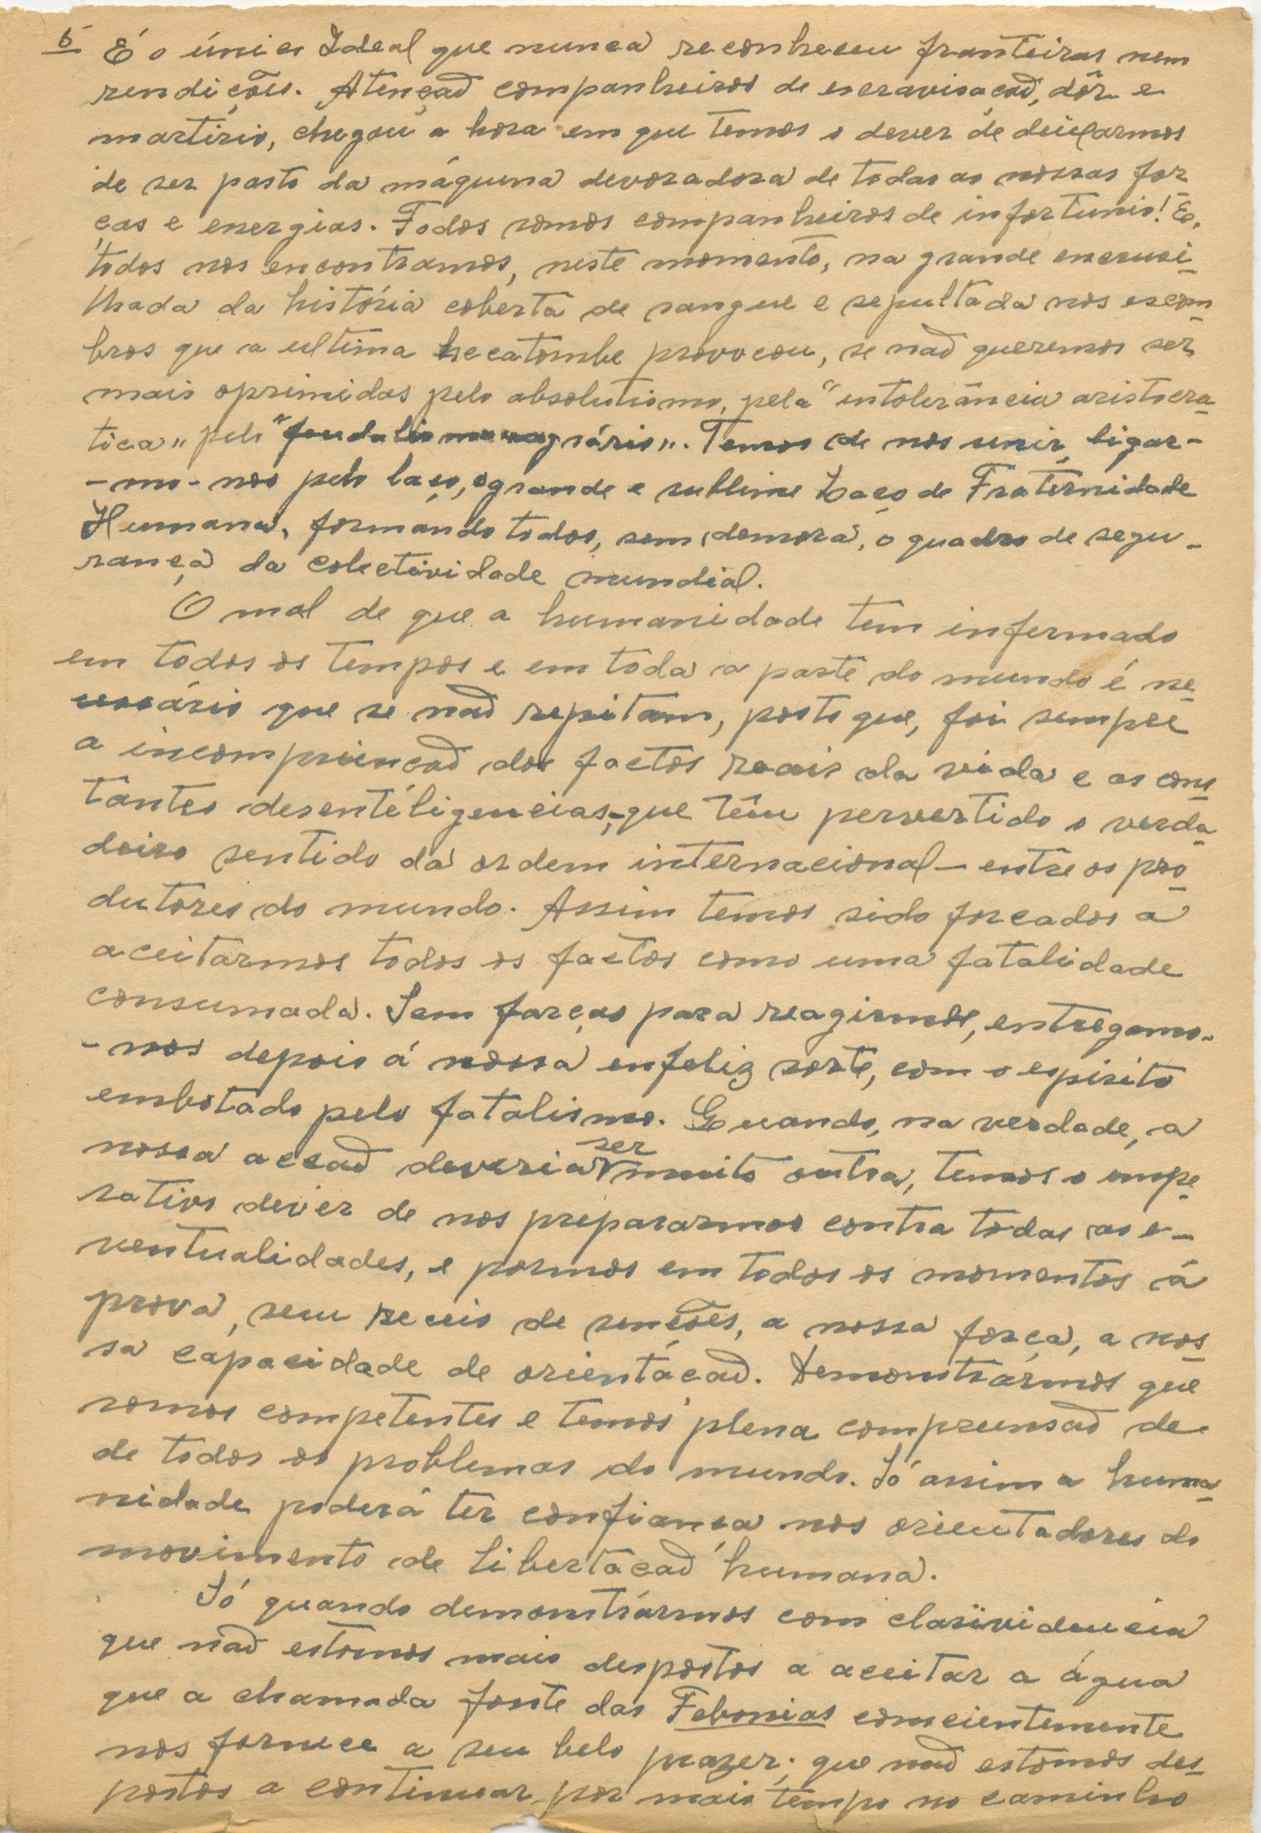 5 É o único Ideal que nunca reconheceu fronteiras nem
rendições. Atenção companheiros de escravisação, dôr e
martírio, chegou a hora em que temos o dever de deixarmos
de ser pasto da máquena devoradora de todas as nossas for
ças e energias. Todos somos companheiros de infortunio! E,
todos nos encontramos, neste momento, na grande encrusi-
lhada da história coberta de sangue e sepultada nos escom-
bros que a ultima hecatombe provocou, se não queremos ser
mais oprimidos pelo absolutismo, pela "intolerância aristocra-
tica" pelo "feudalismo agrário". Temos de nos unir, ligar-
-mo-nos pelo laço, o grande e sublime Laço de Fraternidade
Humana, formando todos, sem demora, o quadro de segu-
rança da colectividade mundial.
O mal de que a humanidade tem infermado
em todos os tempos e em toda a parte do mundo é ne-
cessário que se não repitam, posto que, foi sempre
a incomprienção dos factos reais da vida e as cons-
tantes desentéligencias, que têm pervertido o verda-
deiro sentido da ordem internacional — entre os pro-
dutores do mundo. Assim temos sido forçados a
aceitarmos todos os factos como uma fatalidade
consumada. Sem forças para reagirmos, entregamo-
-nos depois á nossa enfeliz sorte, com o espirito
embotado pelo fatalismo. Quando, na verdade, a
nossa acção deveria ser muito outra, temos o empe-
rativo dever de nos prepararmos contra todas as e-
ventualidades, e pormos em todos os momentos á
prova, sem receio de senções, a nossa força, a nos-
sa capacidade de orientáção. Demonstrármos que
somos competentes e temos plena compreensão de
de todos os problemas do mundo. Só assim a huma-
nidade poderá ter confiança nos orientadores do
movimento de libertação humana.
Só quando demonstrármos com clarividencia
que não estamos mais despostos a aceitar a água
que a chamada fonte das Febonias conscientemente
nos fornece a seu belo prazer; que não estamos des-
postos a continuar por mais tempo no caminho